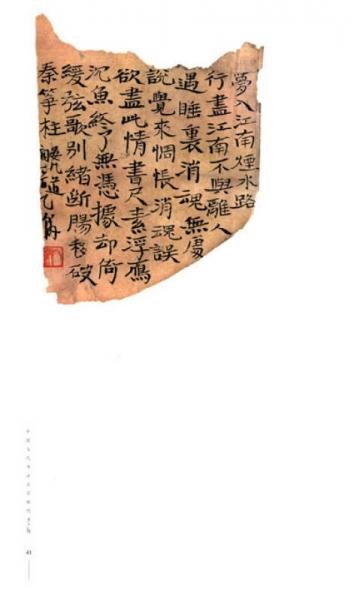 夢入江南煙水路
行盡江南不與離人
遇睡裏消魂無處
說覺來惆悵消魂誤
欲盡此情書尺素浮鴈
沉魚終了無憑據却倚
緩弦歌別緒斷腸移破
秦箏柱
晏几道
41